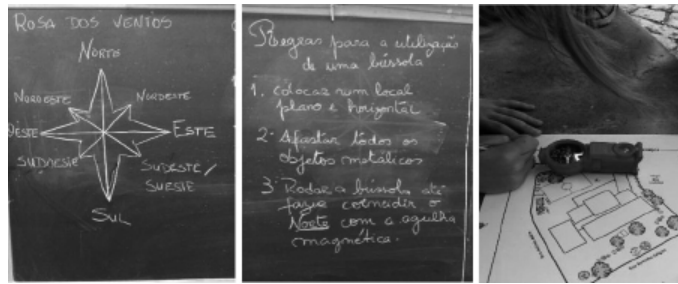 ROSA DOS VENTOS
NORTE
NOROESTE
NORDESTE
OESTE
ESTE
SUDOESTE
SUDESTE/
SUESTE
SUL
Regras para a utilização
de uma bússola
1. Colocar num local
plano e horizontal
2. Afastar todos os
objetos metálicos
3. Rodar a bússola até
fazer coincidir o
Norte com a agulha
magnética.